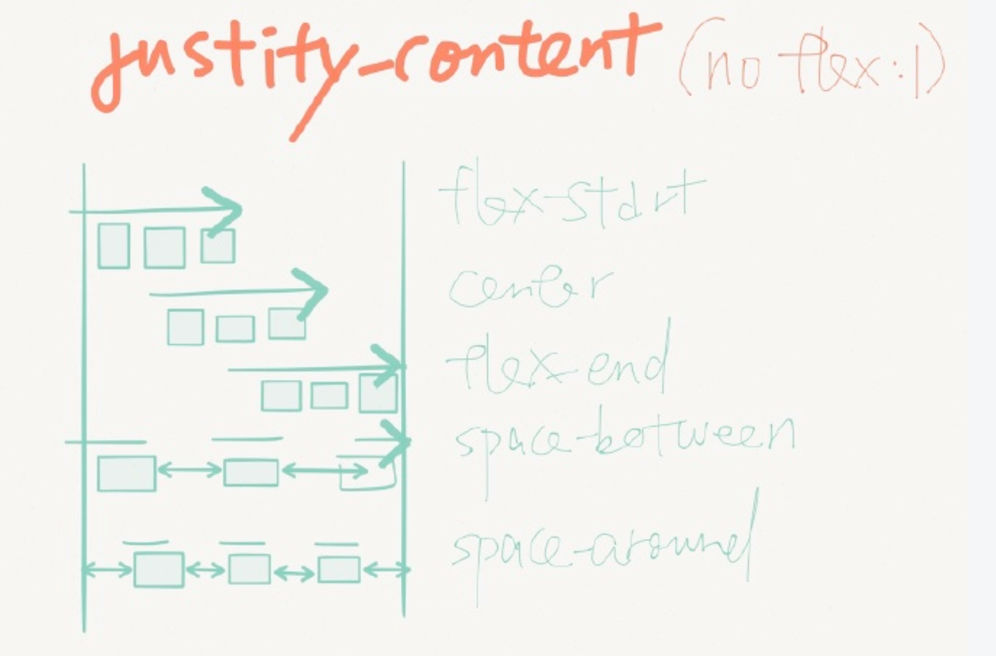 justify-content (no flex:1)
flex-start
center
flex-end
space-between
space-around